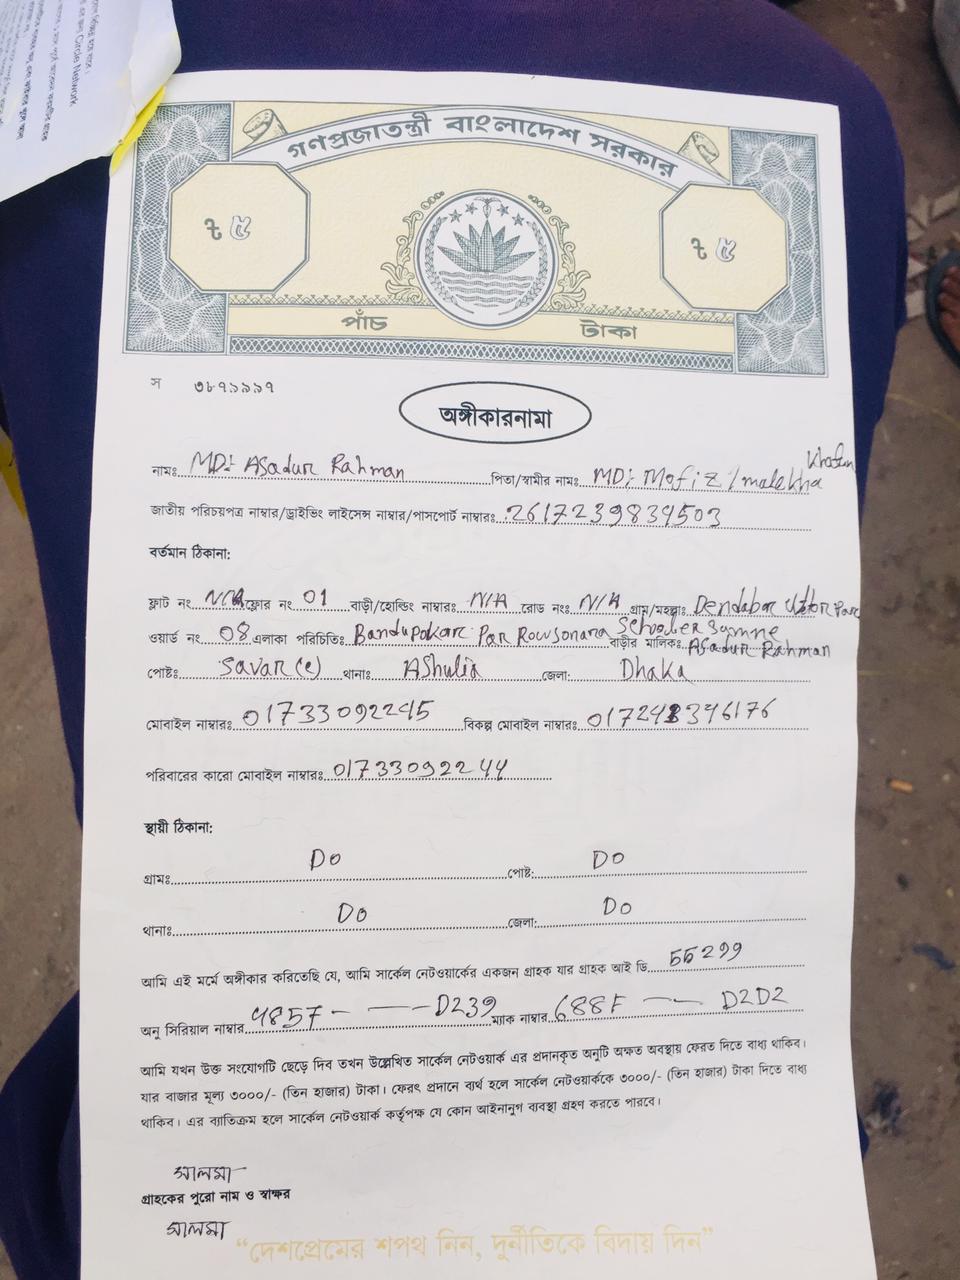 গণপ্রজাতন্ত্রী বাংলাদেশ সরকার
৳ ৫
৳ ৫
পাঁচ টাকা
স ৩৮৭৯৯৯৭
অঙ্গীকারনামা
নামঃ MD: Asadur Rahman পিতা/স্বামীর নামঃ MD: Mofiz / malekha Khatun
জাতীয় পরিচয়পত্র নাম্বার/ড্রাইভিং লাইসেন্স নাম্বার/পাসপোর্ট নাম্বারঃ 2617239834503
বর্তমান ঠিকানা:
ফ্লাট নং N/A ফ্লোর নং 01 বাড়ী/হোল্ডিং নাম্বারঃ N/A রোড নংঃ N/A গ্রাম/মহল্লাঃ Dendabor Uttor Para
ওয়ার্ড নং 08 এলাকা পরিচিতিঃ Bandupokar Par Rowsonara Schooler Samne বাড়ীর মালিকঃ Asadur Rahman
পোষ্টঃ Savar (c) থানাঃ AShulia জেলা: Dhaka
মোবাইল নাম্বারঃ 01733092245 বিকল্প মোবাইল নাম্বারঃ
পরিবারের কারো মোবাইল নাম্বারঃ 01733092244
স্থায়ী ঠিকানা:
গ্রামঃ DO পোষ্ট: DO
থানাঃ DO জেলা: DO
আমি এই মর্মে অঙ্গীকার করিতেছি যে, আমি সার্কেল নেটওয়ার্কের একজন গ্রাহক যার গ্রাহক আই ডি 55299
অনু সিরিয়াল নাম্বার 4857 - — D239 ম্যাক নাম্বার 688F — D2D2
আমি যখন উক্ত সংযোগটি ছেড়ে দিব তখন উল্লেখিত সার্কেল নেটওয়ার্ক এর প্রদানকৃত অনুটি অক্ষত অবস্থায় ফেরত দিতে বাধ্য থাকিব।
যার বাজার মূল্য ৩০০০/- (তিন হাজার) টাকা। ফেরৎ প্রদানে ব্যর্থ হলে সার্কেল নেটওয়ার্ককে ৩০০০/- (তিন হাজার) টাকা দিতে বাধ্য
থাকিব। এর ব্যতিক্রম হলে সার্কেল নেটওয়ার্ক কর্তৃপক্ষ যে কোন আইনানুগ ব্যবস্থা গ্রহণ করতে পারবে।
সালমা
গ্রাহকের পুরো নাম ও স্বাক্ষর
সালমা
“দেশপ্রেমের শপথ নিন, দুর্নীতিকে বিদায় দিন”
Circle Network